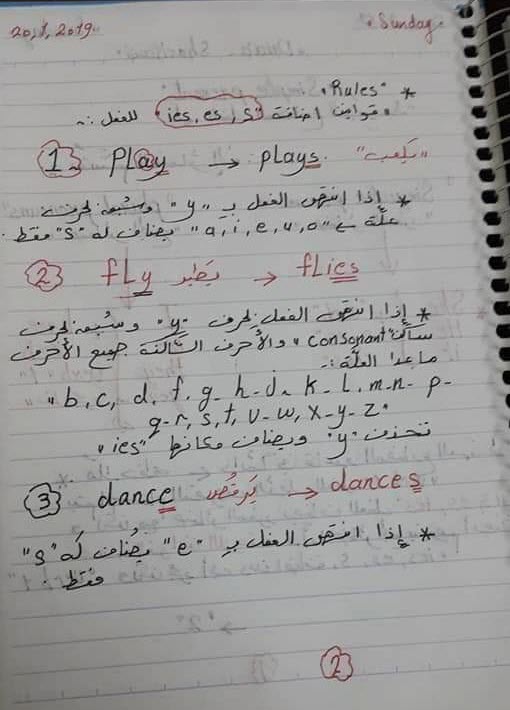 20,1,2019 "Sunday"
* "Rules"
"قوانين اضافة "ies, es, s للفعل :~
1 Play → plays "يلعب"
* إذا انتهى الفعل بـ "y" وسُبقه بحرف
علّة ے "a, i, e, u, o" يضاف له "s" فقط .
2 fLy يَطير → fLies
* إذا انتهى الفعل بحرف "y" وسُبقه بحرف
ساكن "consonant" والأحرف الساكنة جميع الأحرف
ما عدا العلّة :-
"b, c, d, f, g - h - J - k - L, m - n - p -
q - r, s, t, v - w, x - y - z "
تحذف "y" ويضاف مكانها "ies"
3 dance يَرقُص → dances
* إذا انتهى الفعل بـ "e" يضاف له "s"
فقط .
2